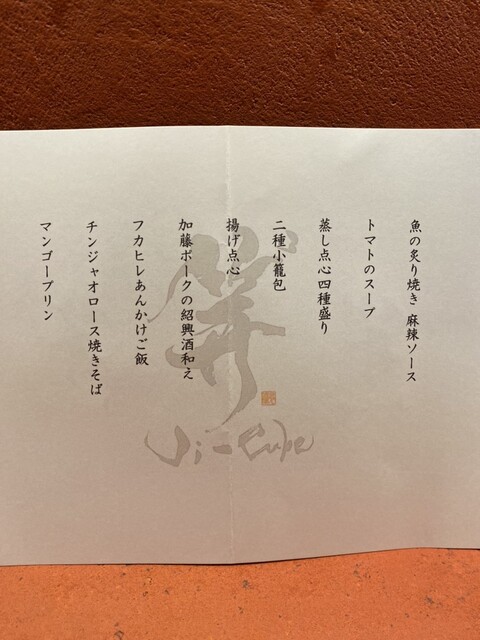 魚の炙り焼き 麻辣ソース
トマトのスープ
蒸し点心四種盛り
二種小籠包
揚げ点心
加藤ポークの紹興酒和え
フカヒレあんかけご飯
チンジャオロース焼きそば
マンゴープリン
Ji-Cube